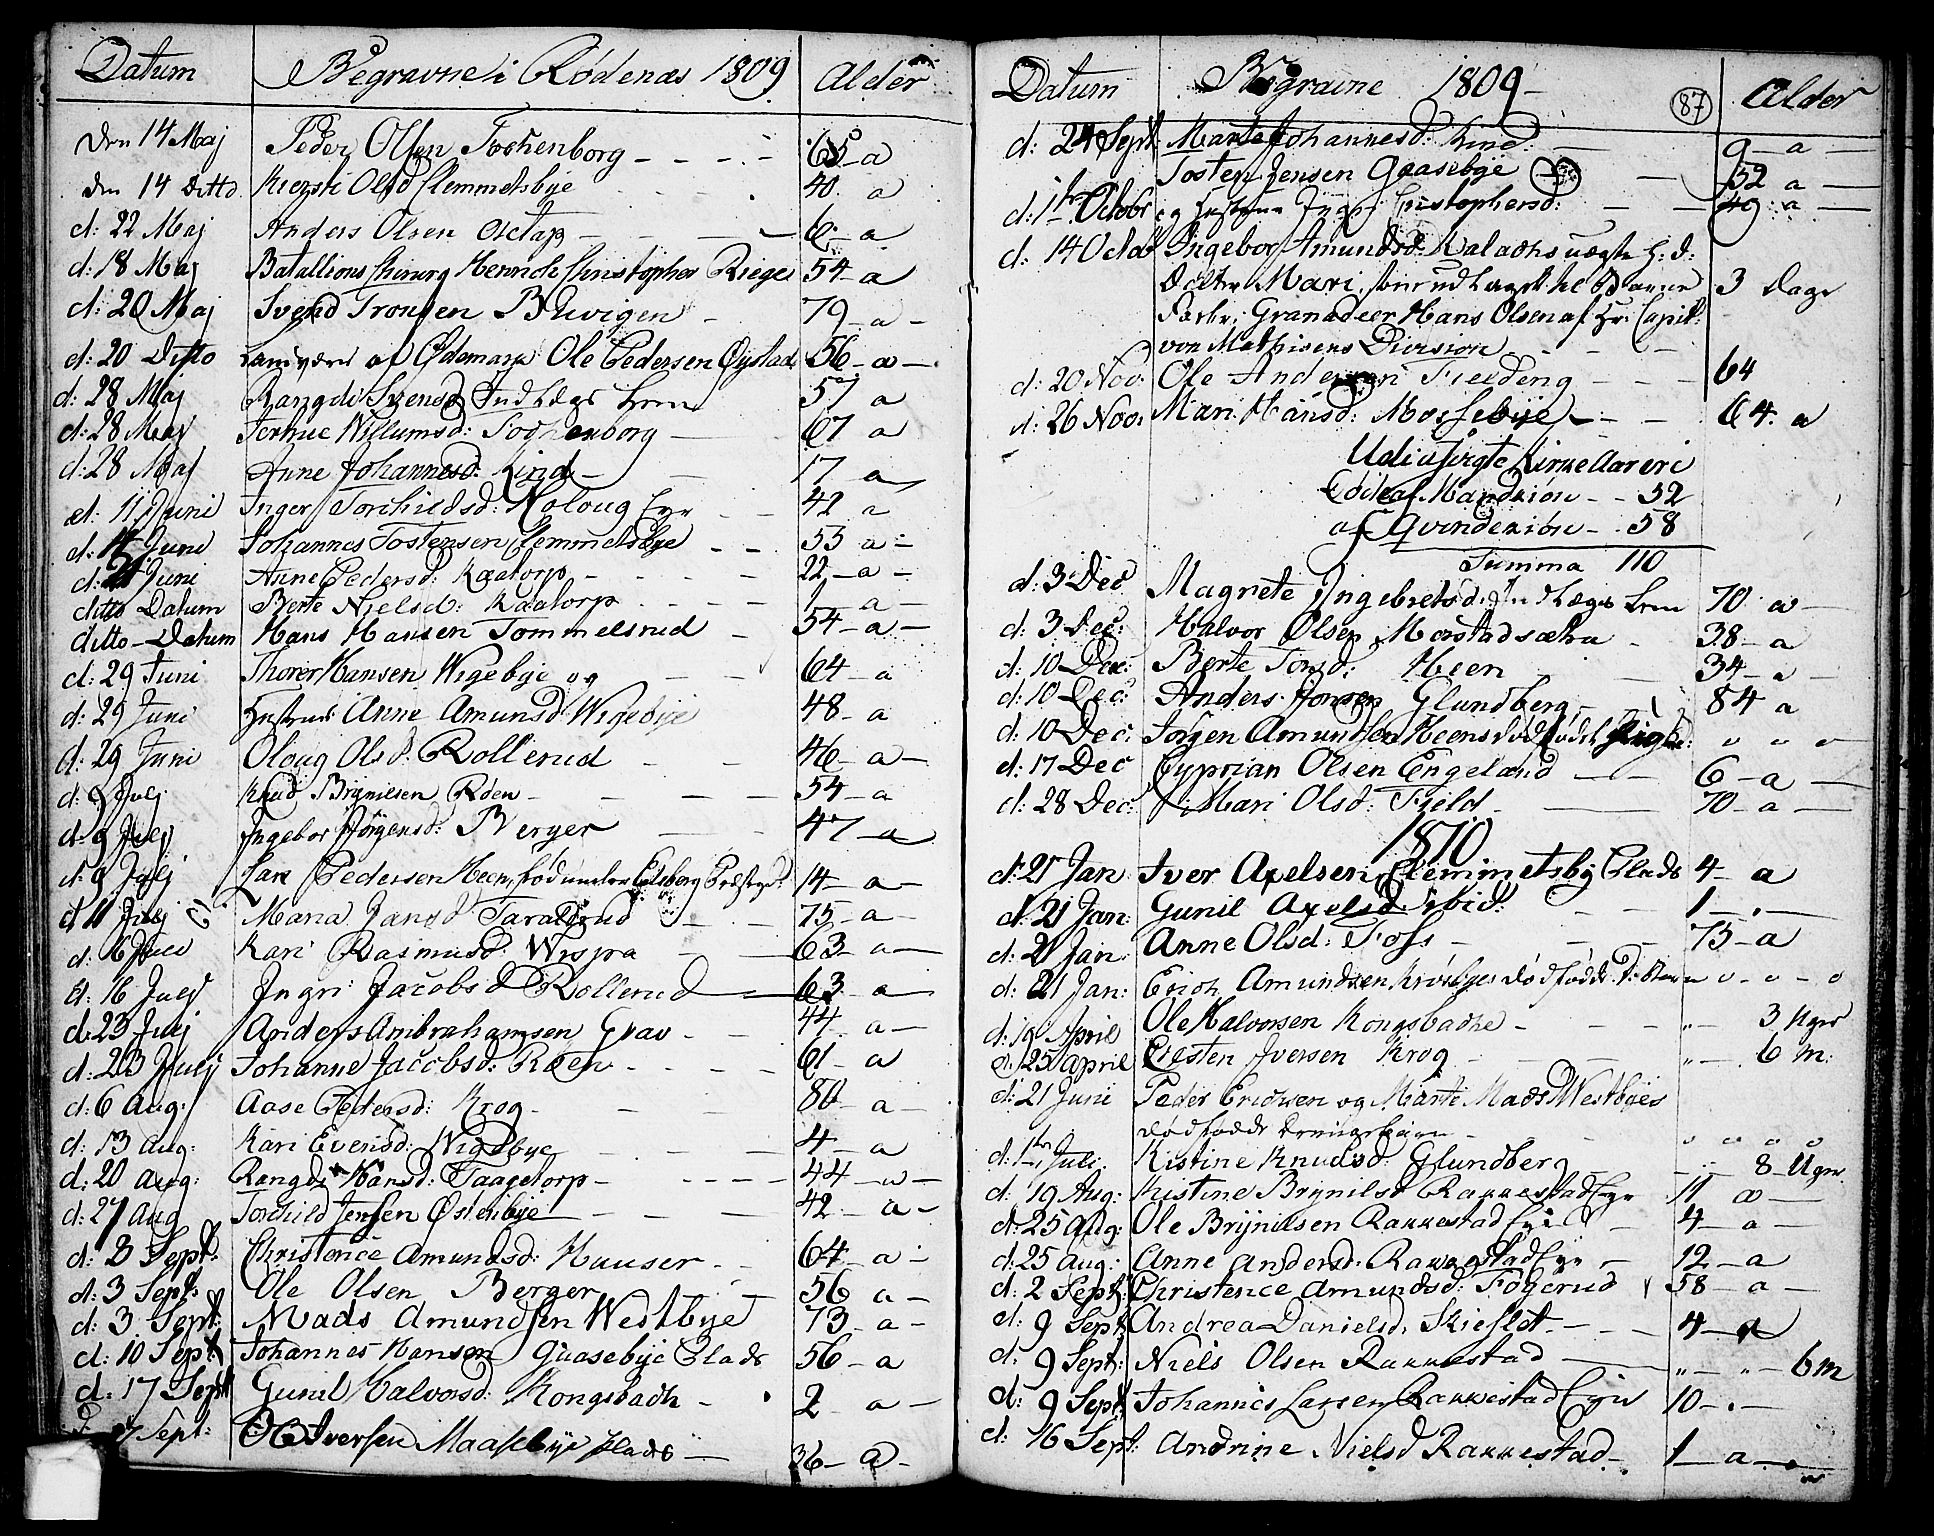 Datum Begravne i Rødenæs 1809 Alder
Den 14 Maj Peder Olsen Tochenborg - - - - 65 a
den 14 Ditto Kiersti Olsd Clemmetsbye 40. a
d: 22 Maj Anders Olsen - - 6 - a
d: 18 Maj Batallions Chirurg Henrich Christopher Rieger 54 - a
d: 20 Maj Svend Tronsen Buvigen - 79 - a -
d: 20 Ditto Landværn af Ødemark Ole Pedersen Øystad 56 - a -
d: 28 Maj Rangdi Svensd Indlægs Lem 57 a
d: 28 Maj Willumsd: Tochenborg - 67 a
d: 28 Maj Anne Johannesd: Kind - 17 - a
d: 11 Juni Inger Torchildsd: Koloug Eje - - 42 a
d: 14 Juni Johannes Tostensen Clemmetsbye - - 53 a -
d: 21 Juni Anne Pedersd: Kaatorp - - - - 22 - a -
ditto Datum Berte Nielsd: Kaatorp - - - 1 - a -
ditto - Datum Hans Hansen Tommelsrud - 54 - a -
d: 29 Juni Thorer Hansen Wigebye og - - 64 - a
d: 29 Juni Hustrue Anne Amunsd: Wigebye 48 - a
d: 29 Juni Oloug Olsd: Rollerud - - 46 - a -
d: 9 Julj Knud Brynilsen Røen - - - 54 - a
d: 9 July Ingebor Jørgensd: Berger - - 47 - a
d: 9 Julj Lars Pedersen Heen, fød under Præstegd: 14 - a -
d 11 Julj Maria Jansd Taraldrud - - 75 - a -
d: 16 Julii Kari Rasmusd: - 63 - a -
d: 16 July Ingri Jacobsd Rollerud 63 - a -
d: 23 Julj Anders Ambrahamsen Grav - - 44 - a -
d: 23 July Johanne Jacobsd: Røen - - - - 61 - a
d: 6 Aug: Aase Pedersd: Krog - - - 80 - a -
d: 13 Aug: Kari Evensd: Wigebye - - 4 - a
d: 20 Aug: Rangdi Hansd: Taagetorp - - - - 44 - a -
d: 27 Aug Torchild Jensen Østenbye - - 42 - a -
d: 3 Sept: Christence Amundsd: Hauser - - 64 - a -
d: 3 Sept: Ole Olsen Berger - 56 a -
d: 3 Sept: Mads Amundsen Westbye 73 - a -
d: 10 Sept Johannes Hansen Gaasebye Plads 56 - a
d: 17 Sept Gunil Halvorsd: Kongsbach - 2 - a -
17 Sept: Ole Iversen Maasebye Plads - 36 - a -
Datum Begravne 1809 - 87 Alder
d: 24 Sept. Marte Johannesd: Kind: - 9 - a -
Tosten Jensen Gaasebye - 52 a -
d: 1ste Octobr og Hustrue Inger Cristophersd: - - 49 - a -
d: 14 Octob Ingebor Amundsd: Kalachs uægte H: d:
Datter Mari, som udlagde til Barne 3 Dage
Fader, Granadeer Hans Olsen af Hr: Capit:
von Mathisens Division - - -
d: 20 Nov: Ole Andersen - - - 64
d: 26 Nov: Mari Hansd: Mossebye - - - 64. a
Udi afvigte Kirke Aar ere
Døde af Mandkiøn - - 52
af Qvindekiøn - 58
Summa 110
d: 3 Dec Magrete Ingebretsd: Indlægs Lem 70 a -
d: 3 Dec: Halvor Olsen Morstadsætra - 38 - a
d: 10 Dec: Berte Torsd: Heen - 34 - a -
d: 10 Dec: Anders Jonsen Glundberg - 84 a
d: 10 Dec: Jørgen Amundsen Heens dødfødde o o o
d: 17 Dec Cyprian Olsen Engeland - - 6 - a -
d: 28 Dec: Mari Olsd: Field - 70 - a -
1810
d: 21 Jan Iver Axelsen Clemmetsby Plads 4 - a
d: 21 Jan: Gunil Axelsd: ibid: - - 1 -.-
d: 21 Jan: Anne Olsd: Foss - - - 73 - a
d: 21 Jan: Erich Amundsen dødfødde o - o - o
d: 19 April Ole Halvorsen Kongsbache - - - " - 3 Uger
d: 25 April Cresten Iversen Krog - - " - 6 m:
d: 21 Juni Peder Erichsen og Marte Mads Westbyes
dødfødde - o o o o
d: 1te Juli Kistine Knudsd: Glundberg - - - 8 Uger
d: 19 Aug: Kistine Brynilsd Rakkestad Eye - 11 a -
d: 25 Aug: Ole Brynilsen Rakkestad Eye - 4 - a -
d: 25 Aug: Anne Andersd: Rakkestad Eye - 12 - a
d: 2 Sept: Christence Amundsd: 58 - a -
d: 9 Sept: Andrea Danielsd: - - - 4 - a
d: 9 Sept: Niels Olsen Rakkestad - " - " - 6 m
d: 9 Sept Johannes Larsen Rakkestad Eyei 10 - . -
d: 16 Sept: Andrine Nielsd Rakkestad - 1 - a -